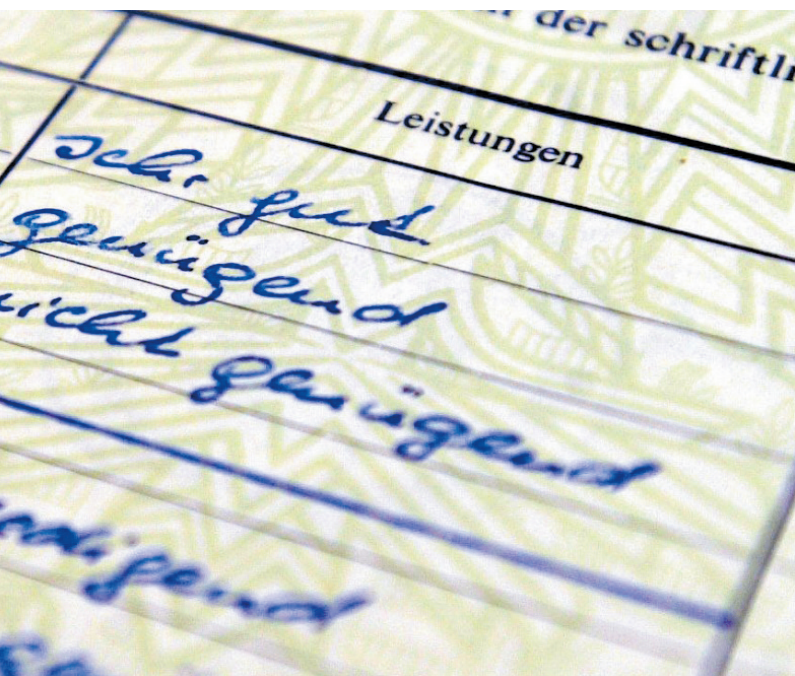 der schriftli
Leistungen
sehr gut
genügend
nicht genügend
edigend